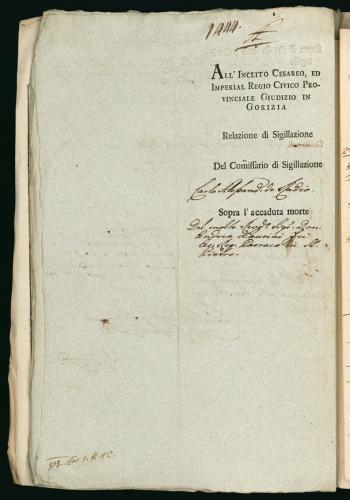 1444.
ALL' INCLITO CESAREO, ED
IMPERIAL REGIO CIVICO PRO-
VINCIALE GIUDIZIO IN
GORIZIA
Relazione di Sigillazione
Del Com̃issario di Sigillazione
Carlo Alessand. de
Sopra l' accaduta morte
Del molto Revd. Sigr. Don
Andrea
Parroco di S.
Pietro.